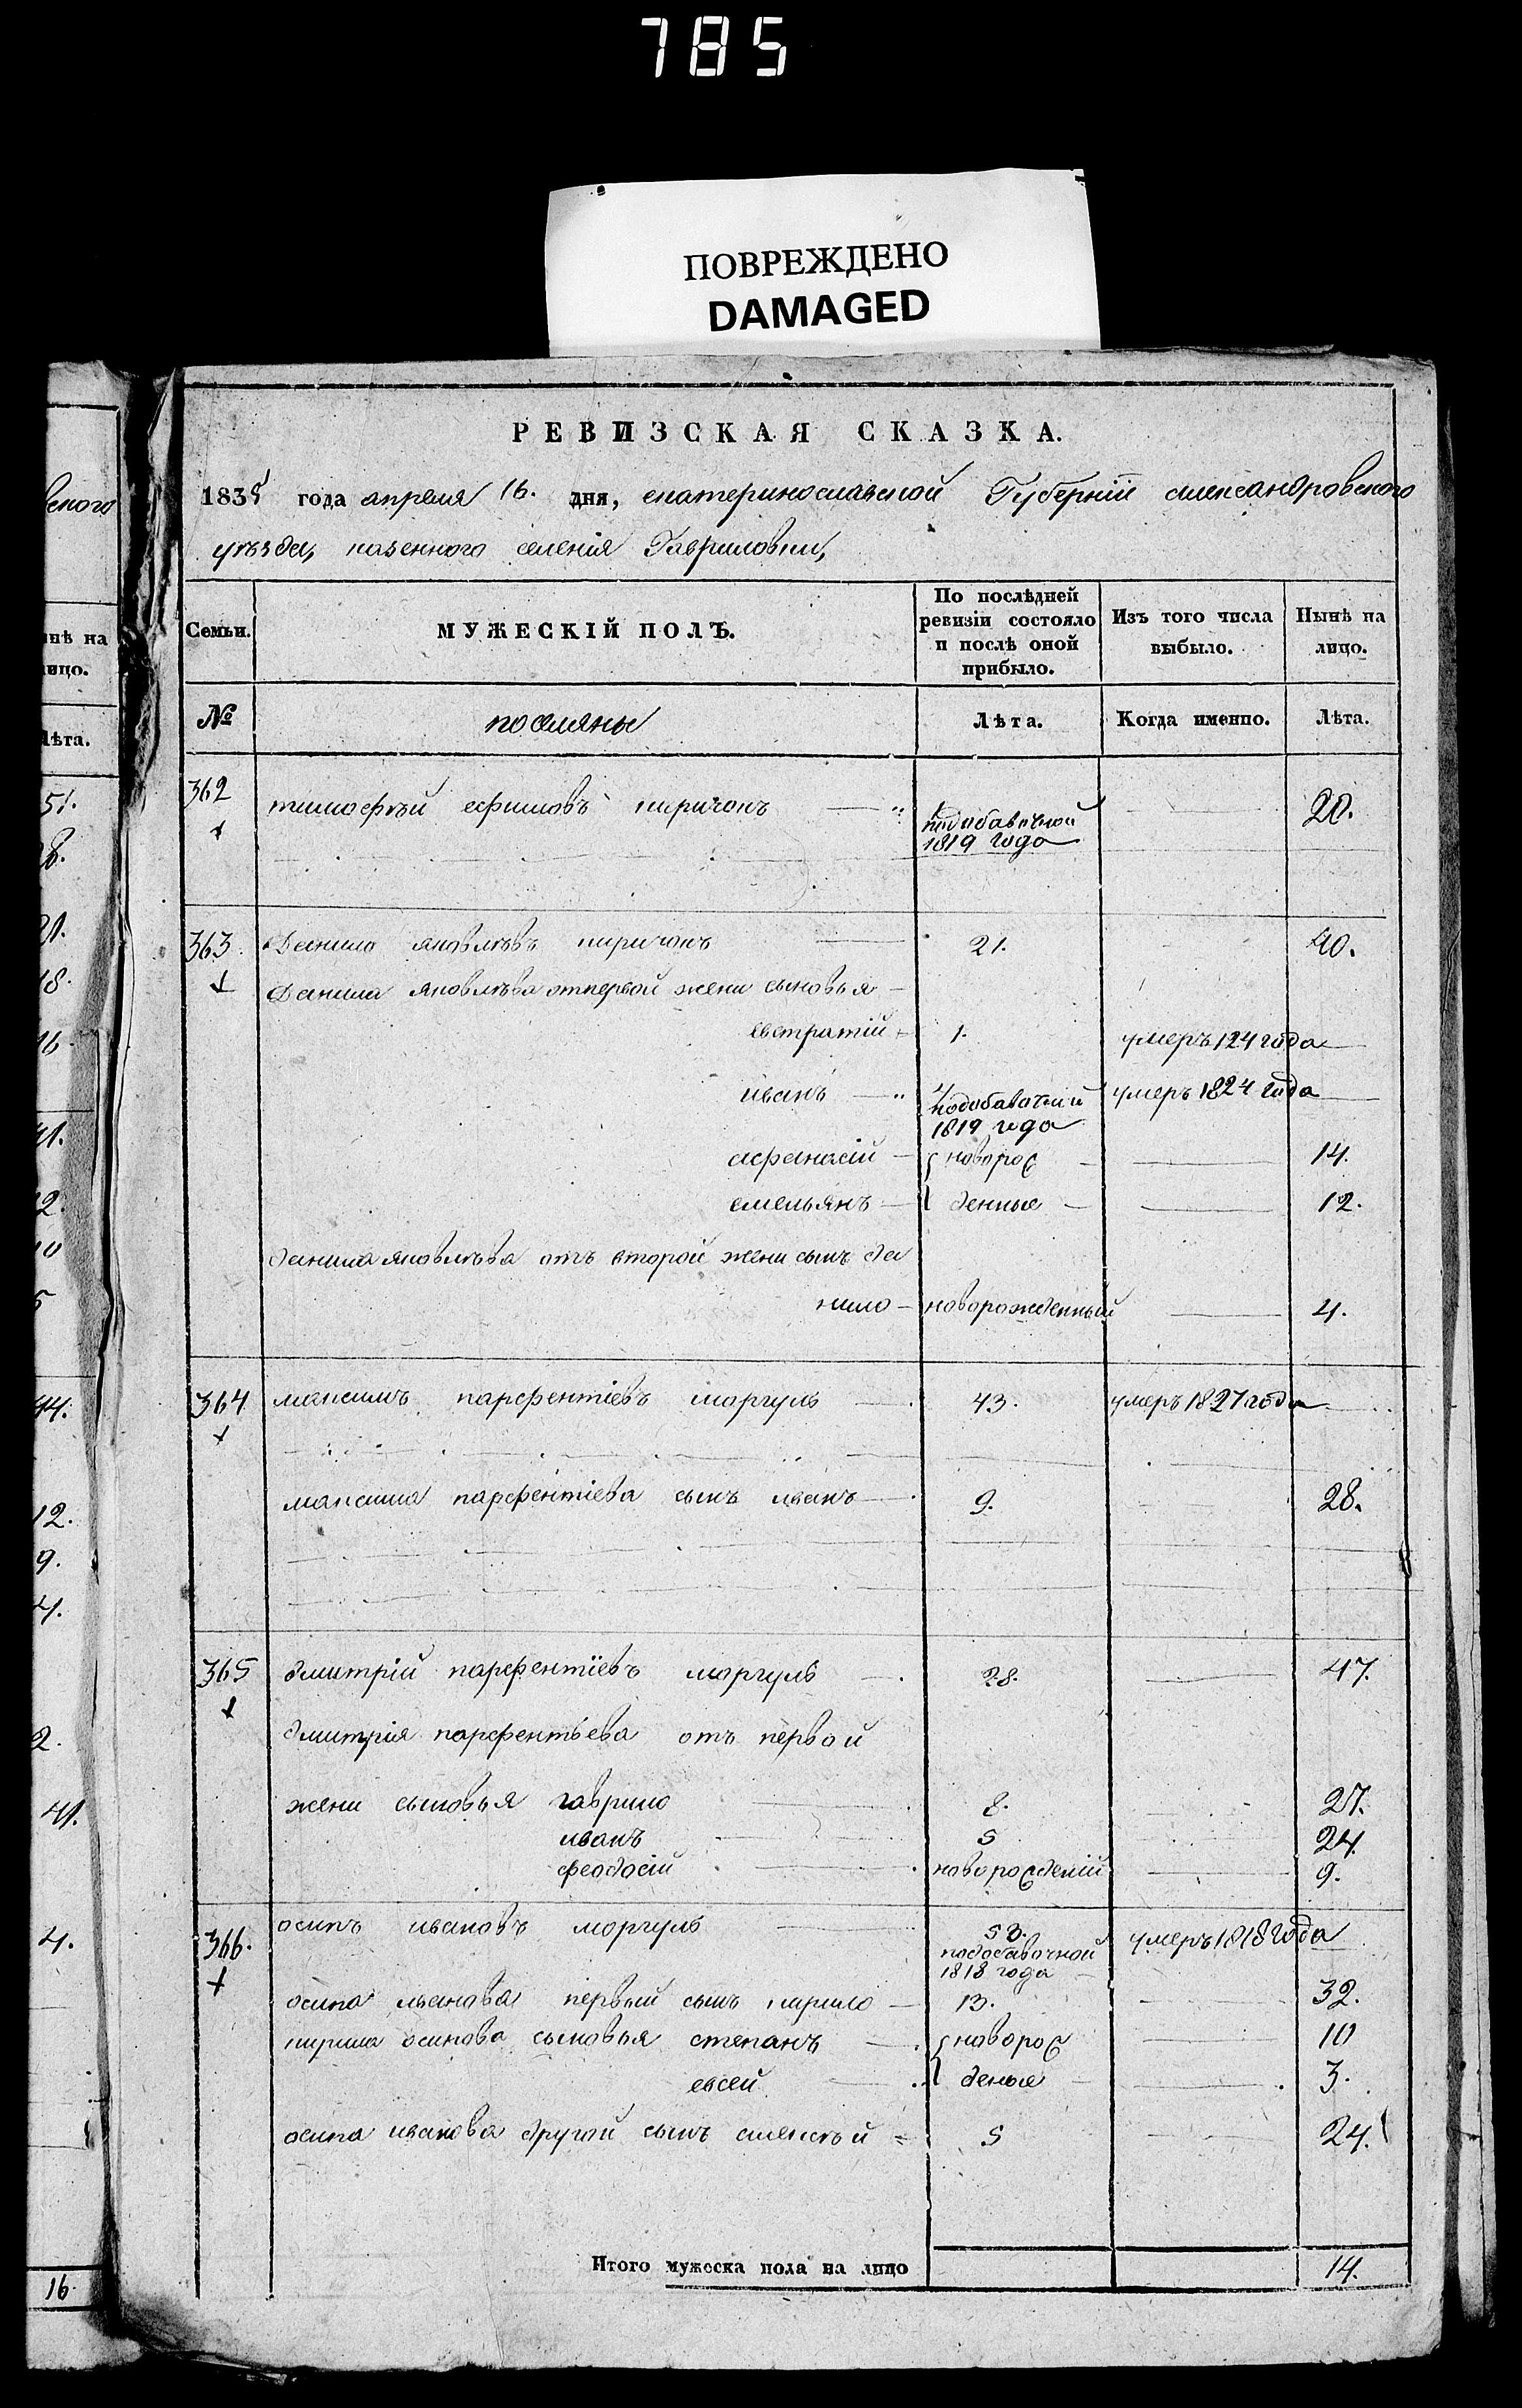 785
ПОВРЕЖДЕНО
DAMAGED
РЕВИЗСКАЯ СКАЗКА.
1835 года апреля 16. дня, екатеринославской Губернiи александровского
уѣзда, казенного селенiя Гавриловки,
Семьи. МУЖЕСКIЙ ПОЛЪ. По послѣдней ревизiи состояло и послѣ оной прибыло. Изъ того числа выбыло. Нынѣ на лицо.
№ поселяны Лѣта. Когда именно. Лѣта.
362 тимофѣй ефимовъ киричокъ 20.
подобавочной
1819 года
363. Данило яковлѣвъ киричокъ 21. 40.
Данила яковлѣва отпервой жени сыновья
евстратiй 1. умеръ 124 года
иванъ умеръ 1824 года
1819 года
афанасiй новорос 14.
емельянъ денные 12.
данила яковлѣва отъ второй жени сынъ да
нило новорожденный 4.
364 максимъ парфентiевъ моргуль 43. умеръ 1827 года
максима парфентiева сынъ иванъ 9. 28.
365 дмитрiй парфентiевъ моргуль 28. 47.
дмитрiя парфентьева отъ первой
жени сыновья гаврило 8. 27.
иванъ 5 24.
феодосiй 9.
366. осипъ ивановъ моргуль 53. умеръ 1818 года
подобавочной
1818 года
осипа иванова первый сынъ кирило 13. 32.
кирила осипова сыновья степанъ новорос 10
евсей деные 3.
осипа иванова другой сынъ алексѣй 5 24.
Итого мужеска пола на лицо 14.
вского
нѣ на
ицо.
ѣта.
51.
8.
21.
18.
16
41.
2.
10
5
44.
12.
9.
4.
2.
41.
4.
16.